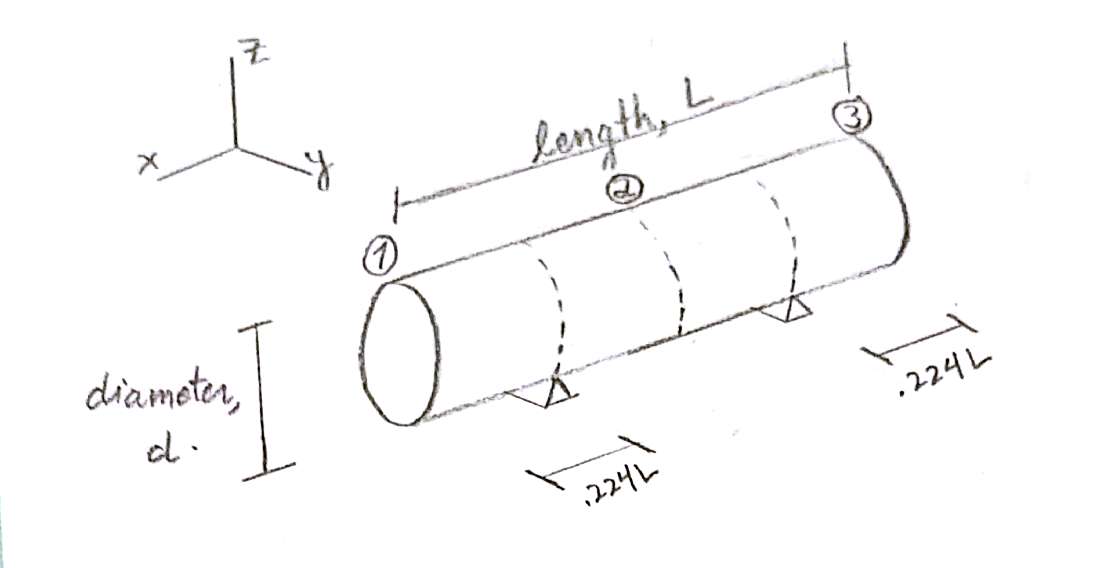 z
x
y
length, L
①
②
③
diameter,
d.
.224L
.224L